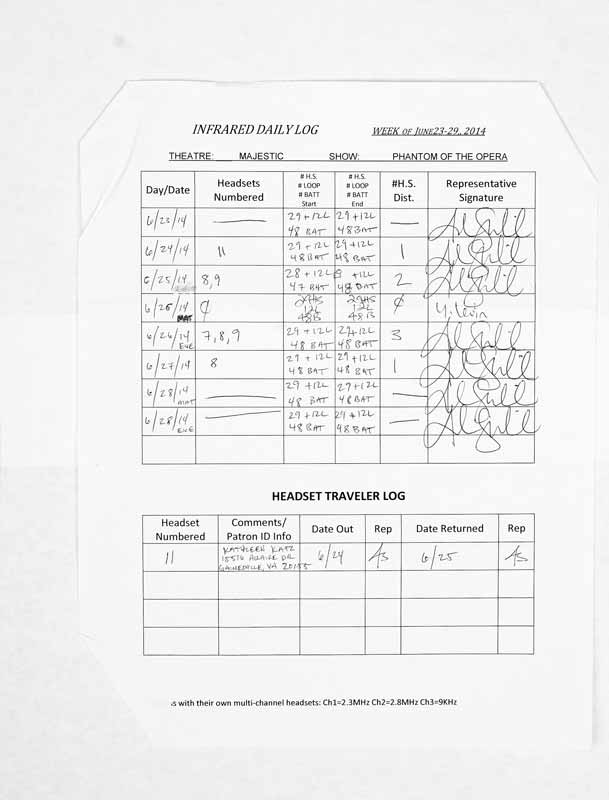 INFRARED DAILY LOG WEEK OF JUNE23-29, 2014
THEATRE: MAJESTIC SHOW: PHANTOM OF THE OPERA
Day/Date Headsets Numbered # H.S. # LOOP # BATT Start # H.S. # LOOP # BATT End #H.S. Dist. Representative Signature
6/23/14 — 29+12L 48 BAT 29+12L 48 BAT —
6/24/14 11 29+12L 48 BAT 29+12L 48 BAT 1
6/25/14 8,9 28+12L 47 BAT +12L 48 BAT 2
6/26/14 MAT ¢ 29HS 12L 48B 29HS 12L 48B ¢ Y. Levin
6/26/14 EVE 7,8,9 29+12L 48 BAT 29+12L 48 BAT 3
6/27/14 8 29+12L 48 BAT 29+12L 48 BAT 1
6/28/14 MAT — 29+12L 48 BAT 29+12L 48 BAT —
6/28/14 EVE — 29+12L 48 BAT 29+12L 48 BAT —
HEADSET TRAVELER LOG
Headset Numbered Comments/ Patron ID Info Date Out Rep Date Returned Rep
11 KATHLEEN KATZ 6/24 AS 6/25 AS
DR
VA 20155
s with their own multi-channel headsets: Ch1=2.3MHz Ch2=2.8MHz Ch3=9KHz